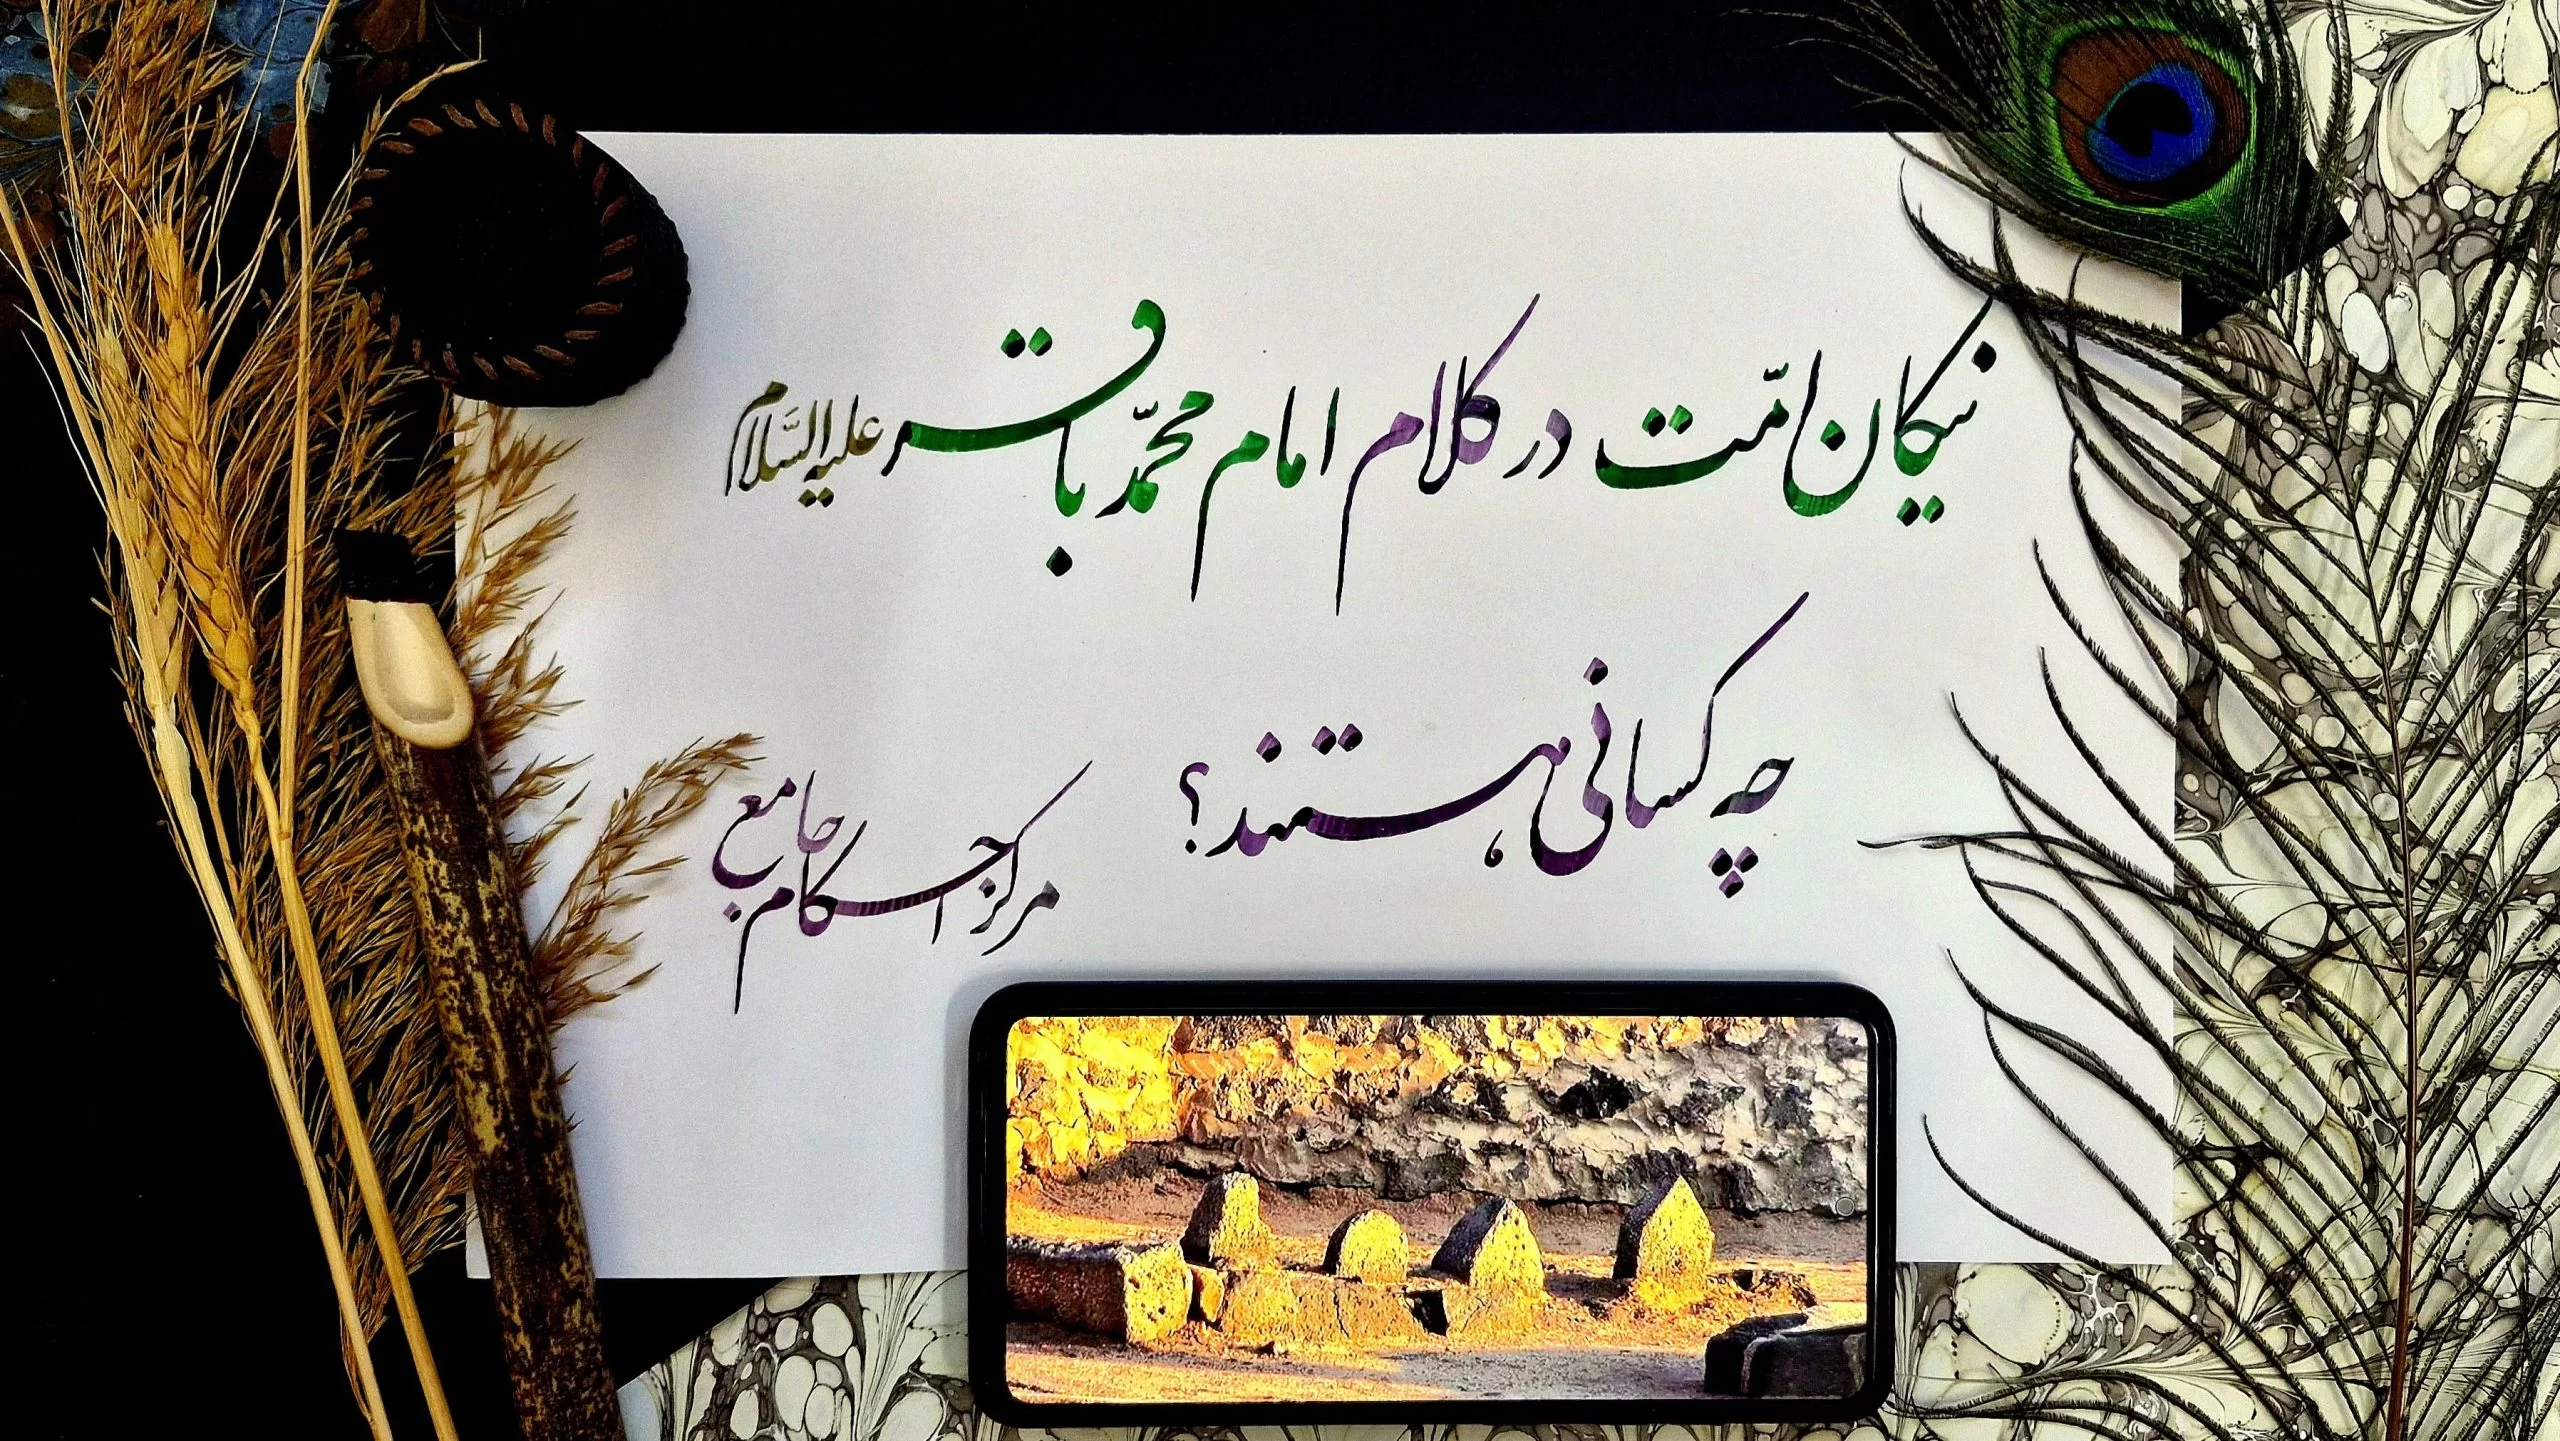 نیکان امّت در کلام امام محمّد باقر علیه السَّلام
چه کسانی هستند؟
مرکز جامع احکام